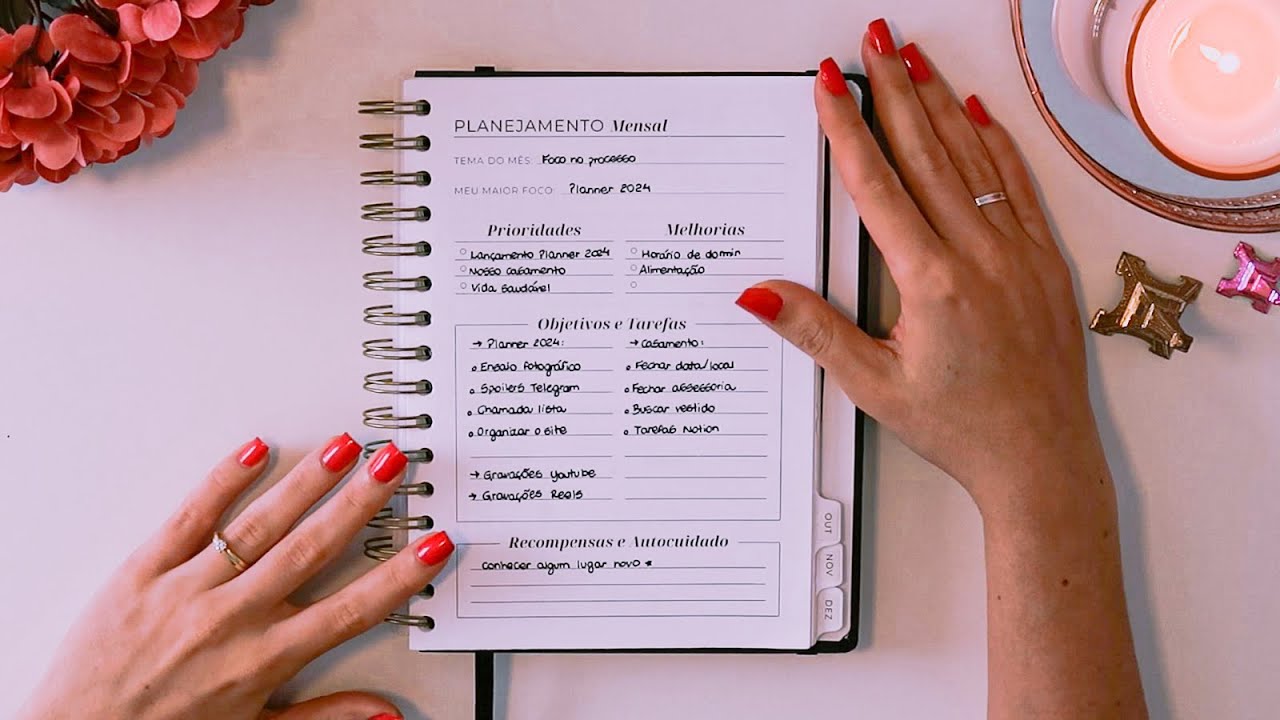 PLANEJAMENTO Mensal
TEMA DO MÊS: Foco no processo
MEU MAIOR FOCO: Planner 2024
Prioridades
Lançamento Planner 2024
Nosso casamento
Vida saudável
Melhorias
Horário de dormir
Alimentação
Objetivos e Tarefas
→ Planner 2024:
Ensaio fotográfico
Spoilers Telegram
Chamada lista
Organizar o site
→ Gravações Youtube
→ Gravações Reels
→ Casamento:
Fechar data/local
Fechar assessoria
Buscar vestido
Tarefas Notion
Recompensas e Autocuidado
Conhecer algum lugar novo *
OUT
NOV
DEZ